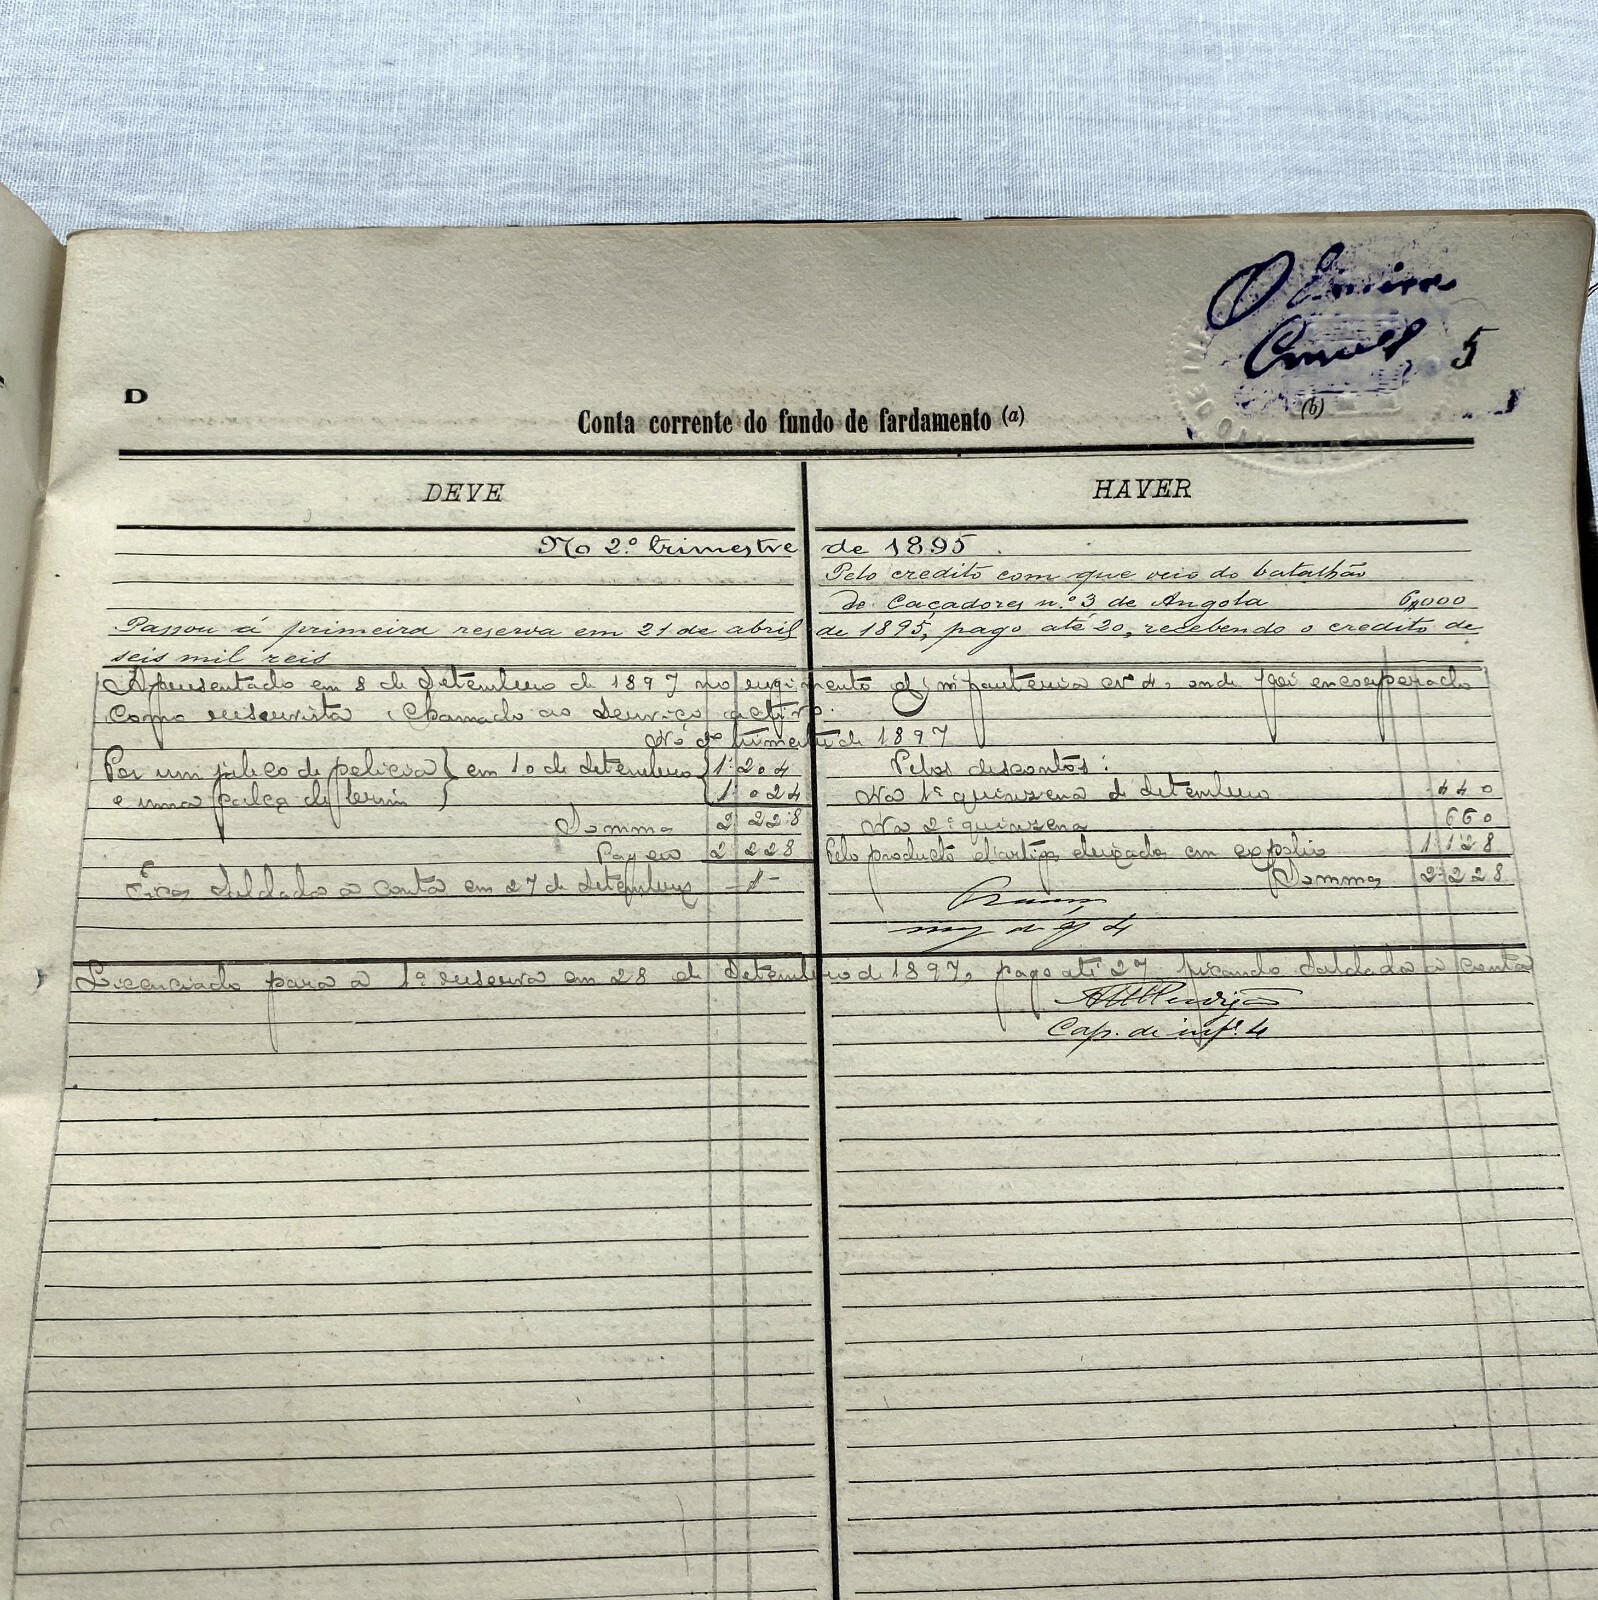 5
D
(b)
Conta corrente do fundo de fardamento (a)
DEVE HAVER
No 2.º trimestre de 1895
Pelo credito com que veio do batalhão
de Caçadores n.º 3 de Angola 6,000
Passou á primeira reserva em 21 de abril de 1895, pago até 20, recebendo o credito de
seis mil reis
Apresentado em 8 de Setembro de 1897 no regimento d'infanteria nº 4, onde foi encorporado
como reservista chamado ao serviço activo.
No 3º trimestre de 1897
Por um jaleco de policia } em 10 de Setembro { 1:204 Pelos descontos:
e uma calça de brim 1 024 Na 1ª quinzena de Setembro 440
Somma 2 228 Na 2ª quinzena 660
Pagou 2 228 Pelo producto d'artigos deixados em espolio 1 128
Fica saldada a conta em 27 de Setembro Somma 2 228
Licenciado para a 1ª reserva em 28 de Setembro de 1897, pago até 27 ficando saldada a conta
Cap. de inf.ª 4